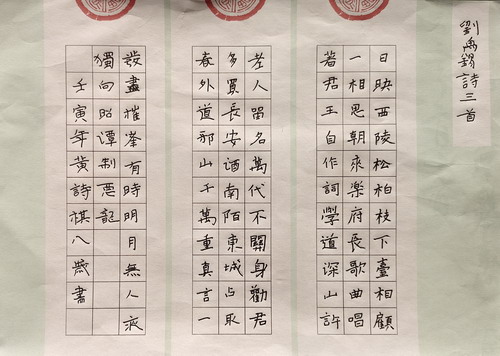 劉禹錫詩三首
日映西陵松柏枝下臺相顧
一相思朝來楽府長歌曲唱
若君王自作詞學道深山許
老人畱名萬代不關身勸君
多買長安酒南陌東城占取
春外道邪山千萬重真言一
發盡摧峯有時明月無人夜
獨向昭潭制惡記
壬寅年黄詩祺八歲書